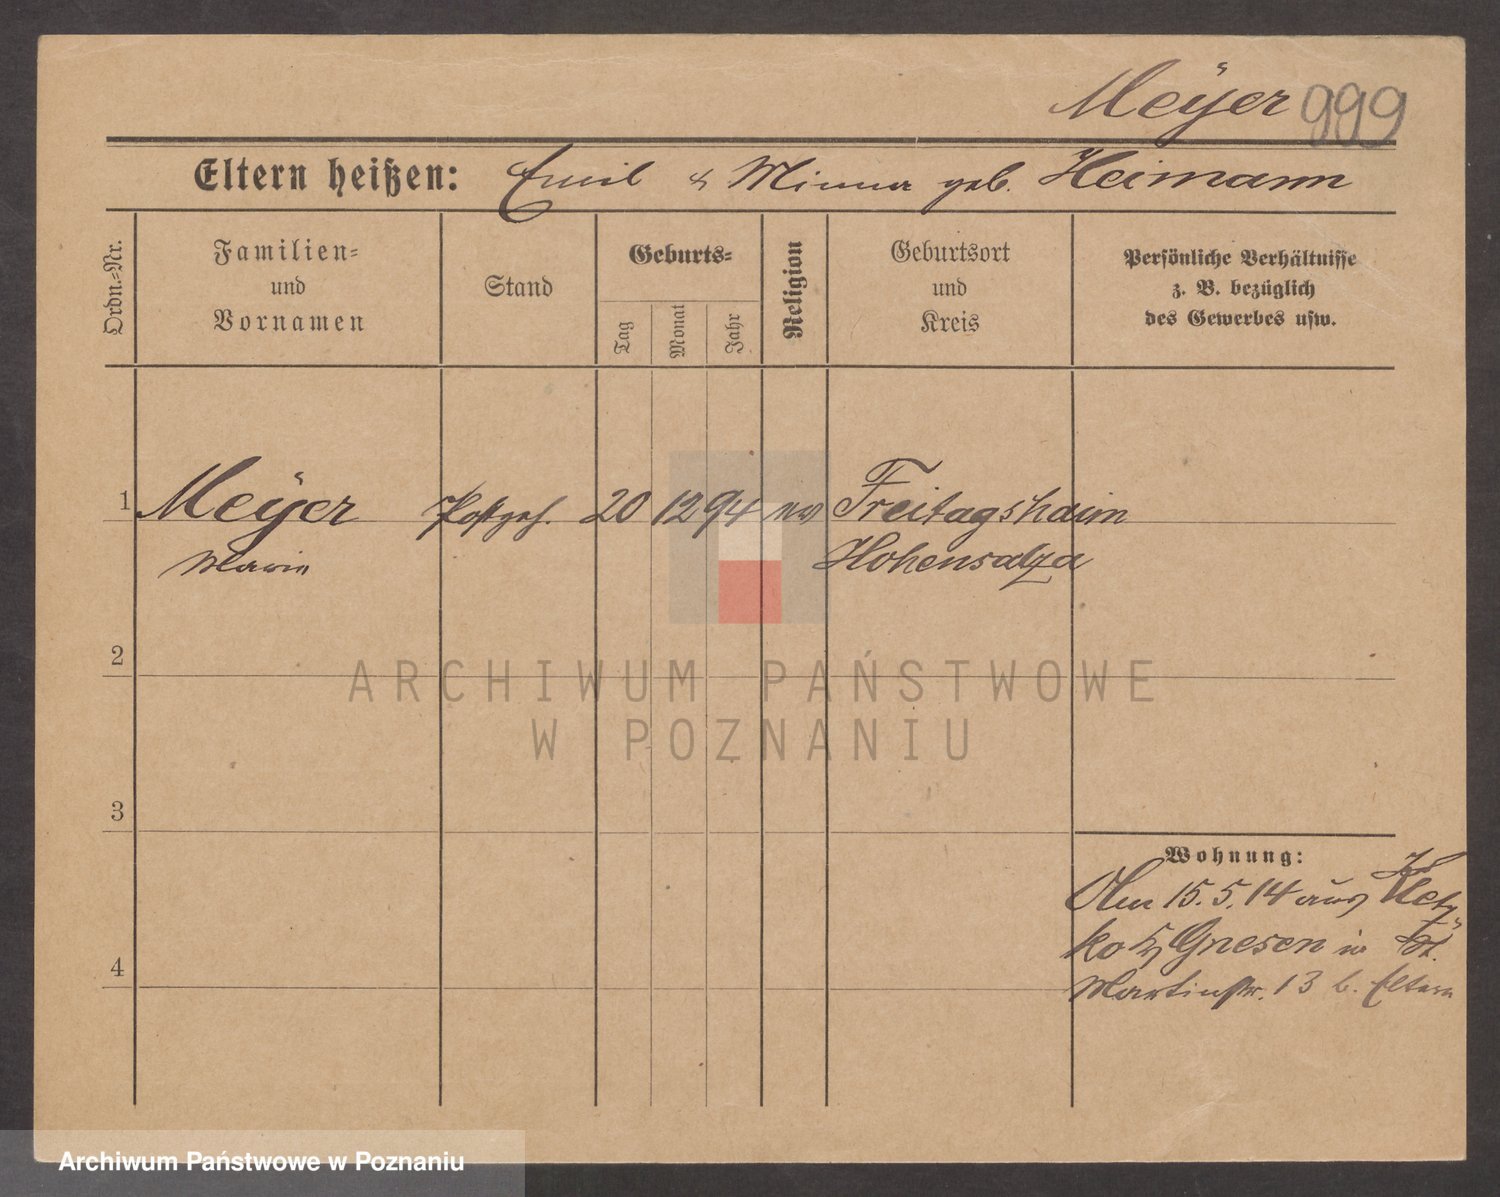 Meÿer 999
Eltern heißen: Emil & Minna geb. Heimann
Ordn.-Nr.
Familien-
und
Vornamen
Stand
Geburts-
Tag
Monat
Jahr
Religion
Geburtsort
und
Kreis
Persönliche Verhältnisse
z. B. bezüglich
des Gewerbes usw.
1 Meÿer Postgeh. 20 12 94 ev Freitagshaim
Marie Hohensalza
2
ARCHIWUM PAŃSTWOWE
W POZNANIU
3
Wohnung:
Am 15.5.14 aus Kletz-
ko Gnesen in St.
4
Martinstr. 13 b. Eltern
Archiwum Państwowe w Poznaniu